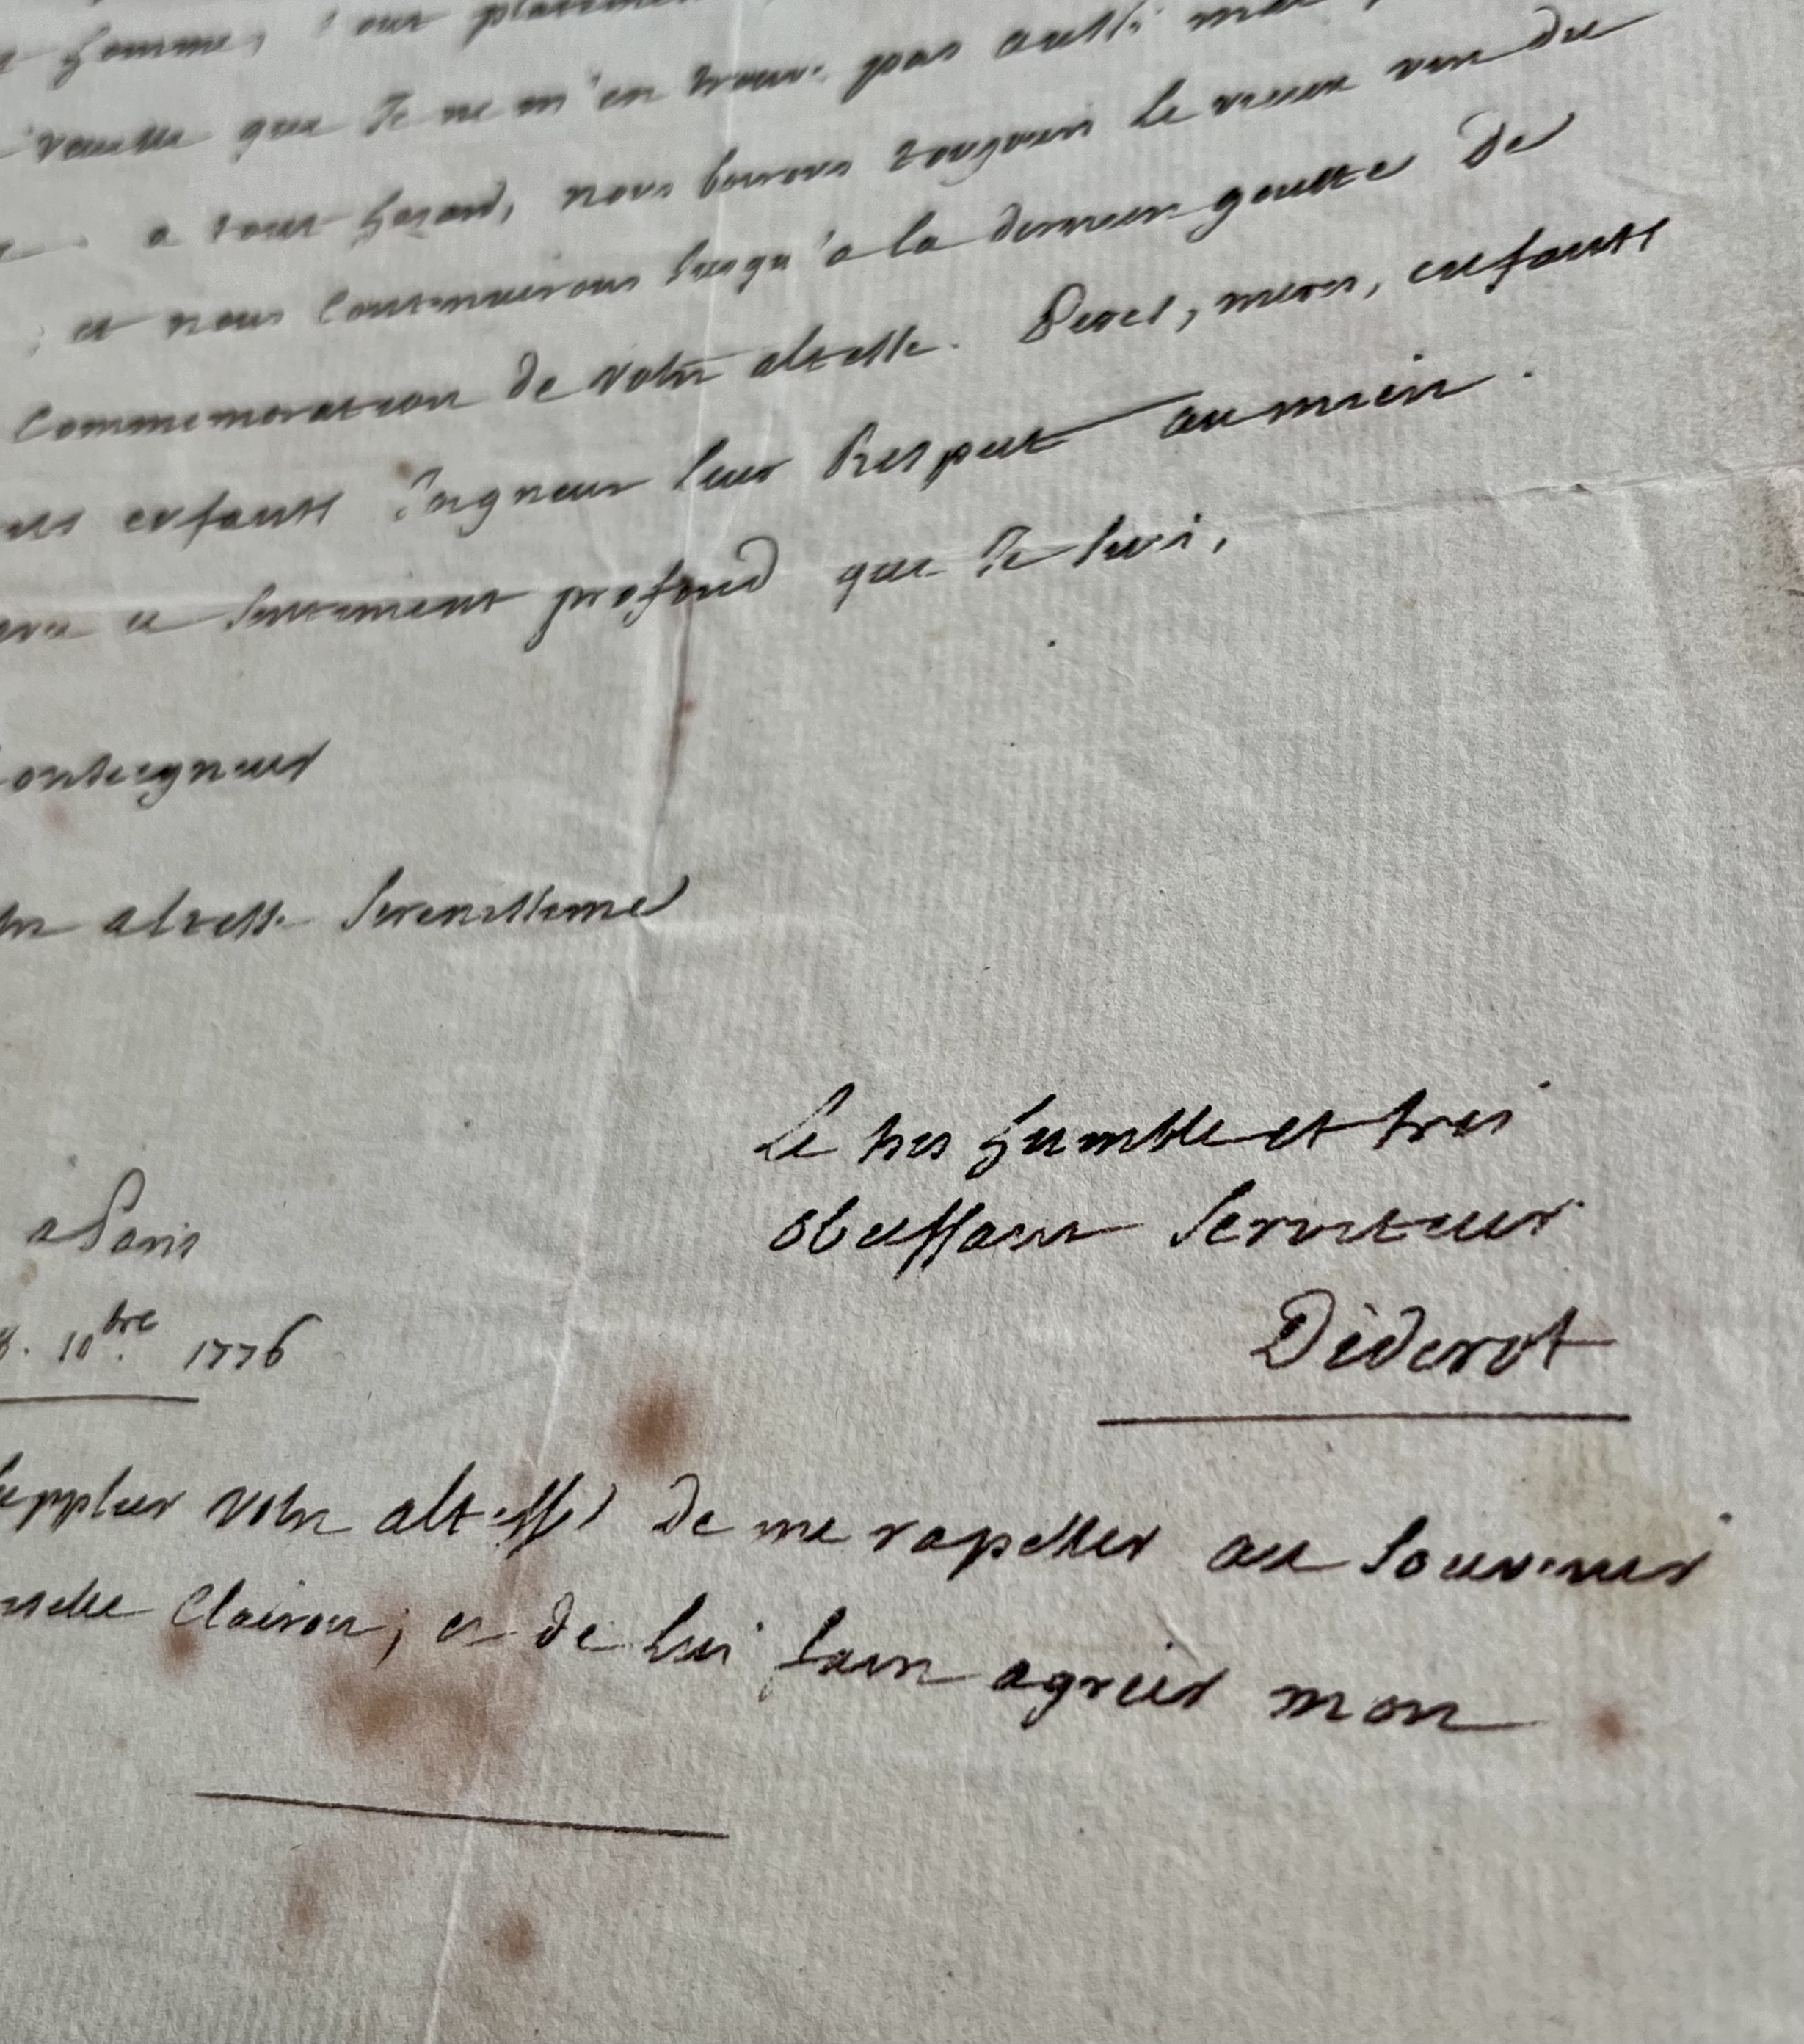 homme,
que Je ne m'en trouve pas aussi mal
a tout hazard, nous boirons toujours le vieux vin du
et nous Continuerons jusqu'a la derniere goutte de
Commemoration de votre altesse. Peres, meres, enfants
enfants Joignent leur Respect au mien.
sentiment profond que Je suis,
onseigneur
altesse serenissime
Le tres humble et tres
obeissant serviteur
Diderot
a Paris
10bre. 1776
supplier votre altesse de me rapeller au souvenir
Clairon; et de lui faire agréer mon